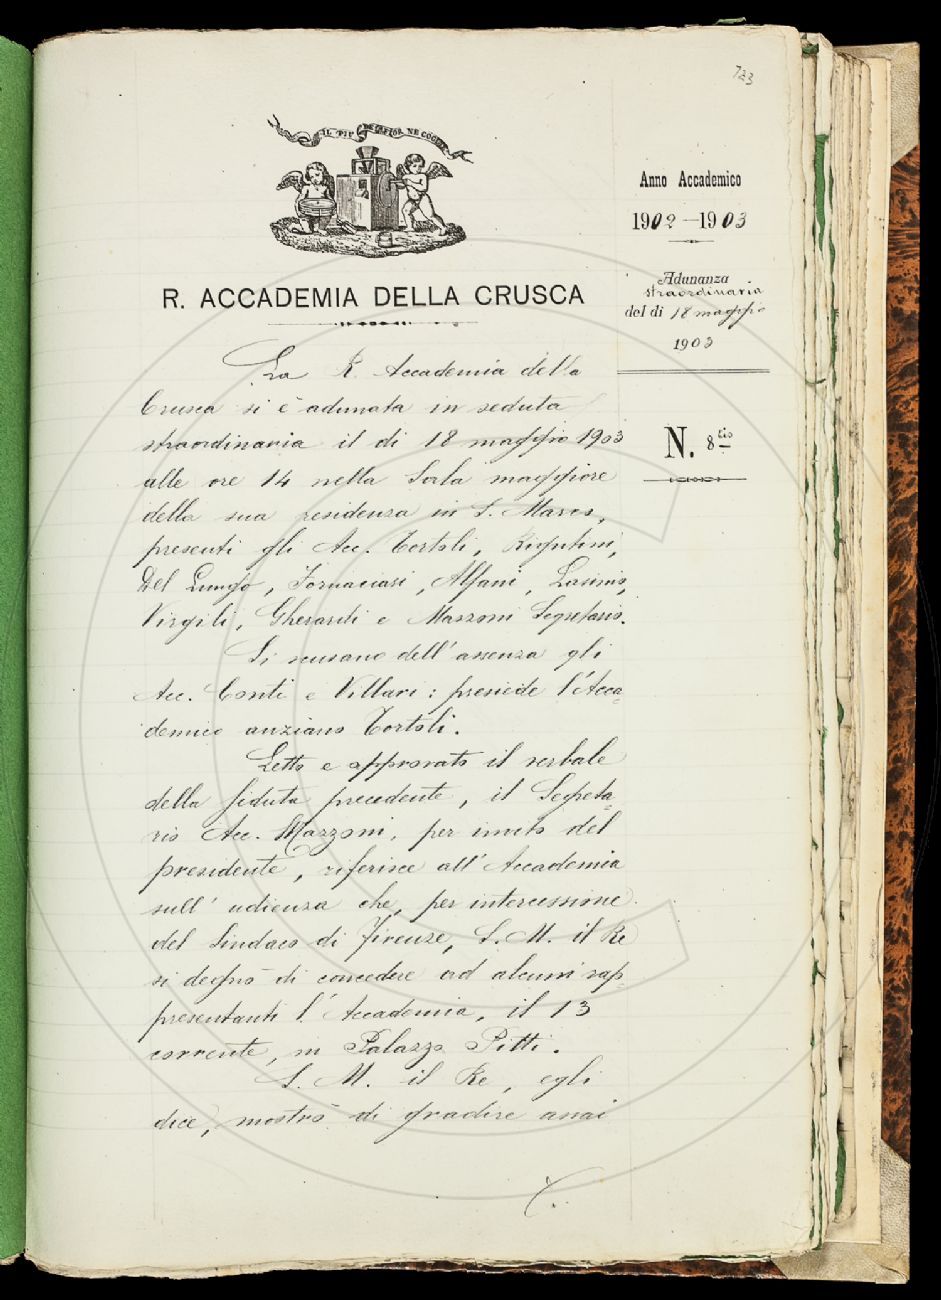 723
IL PIÙ BEL FIOR NE COGLIE
Anno Accademico
1902-1903
Adunanza
straordinaria
del dì 18 maggio
1903
R. ACCADEMIA DELLA CRUSCA
N. 8
La R. Accademia della
Crusca si è adunata in seduta
straordinaria il dì 18 maggio 1903
alle ore 14 nella Sala maggiore
della sua residenza in S. Marco,
presenti gli Acc. Tortoli, Rigutini,
Del Lungo, Fornaciari, Alfani, Lasinio,
Virgili, Gherardi e Mazzoni Segretario.
Si scusano dell'assenza gli
Acc. Conti e Villari: presiede l'Acca-
demico anziano Tortoli.
Letto e approvato il verbale
della seduta precedente, il Segreta-
rio Acc. Mazzoni, per invito del
presidente, riferisce all'Accademia
sull'udienza che, per intercessione
del Sindaco di Firenze, S. M. il Re
si degnò di concedere ad alcuni rap-
presentanti l'Accademia, il 13
corrente, in Palazzo Pitti.
S. M. il Re, egli
dice, mostrò di gradire assai